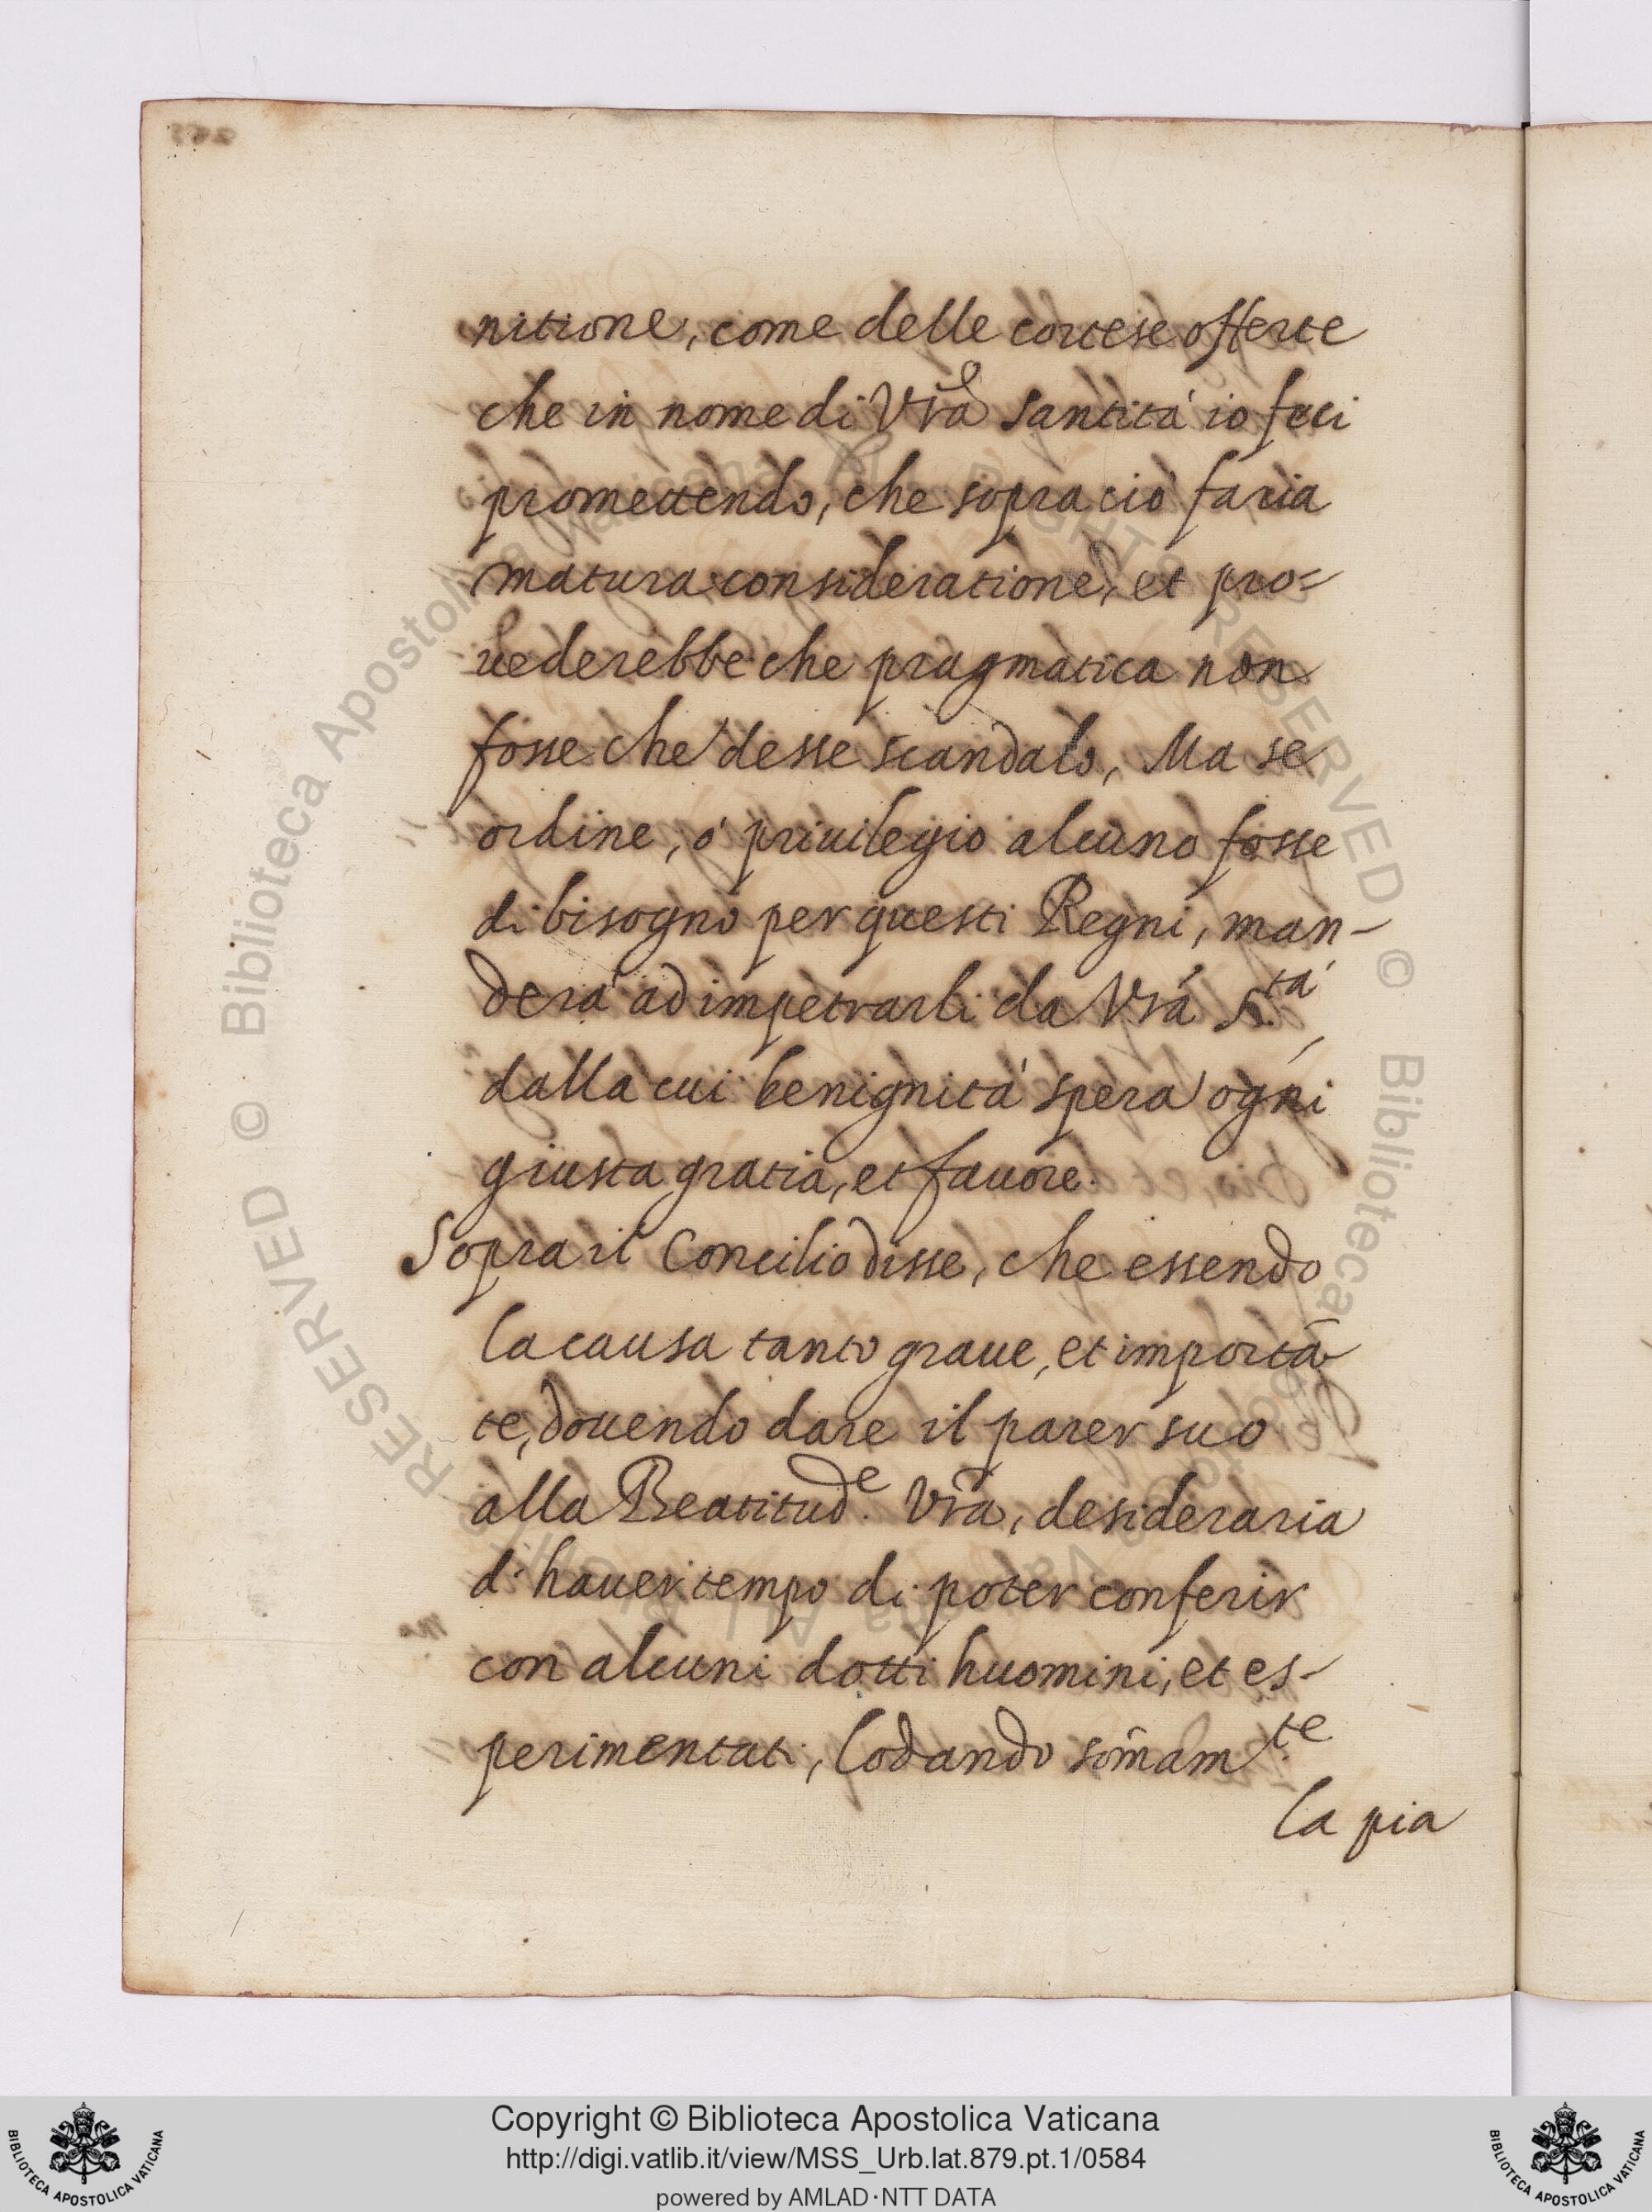 nitione, come delle cortese offerte
che in nome di Vra Santità io feci
promettendo, che sopra ciò faria
matura consideratione, et pro=
uederebbe che pragmatica non
fosse che desse scandalo, Ma se
ordine, ò priuilegio alcuno fosse
di bisogno per questi Regni, man-
derà ad impetrarli da Vrà S.tà
dalla cui benignità spera ogni
giusta gratia, et fauore.
Sopra il Concilio disse, che essendo
la causa tanto graue, et importā
te, douendo dare il parer suo
alla Beatitud.e Vrā, desideraria
di hauer tempo di poter conferir
con alcuni dotti huomini, et es-
perimentati, lodando som̄am.te
la pia
© Biblioteca Apostolica Vaticana ALL RIGHTS RESERVED © Biblioteca Apostolica Vaticana ALL RIGHTS RESERVED
Copyright © Biblioteca Apostolica Vaticana
http://digi.vatlib.it/view/MSS_Urb.lat.879.pt.1/0584
powered by AMLAD·NTT DATA
BIBLIOTECA APOSTOLICA VATICANA
BIBLIOTECA APOSTOLICA VATICANA